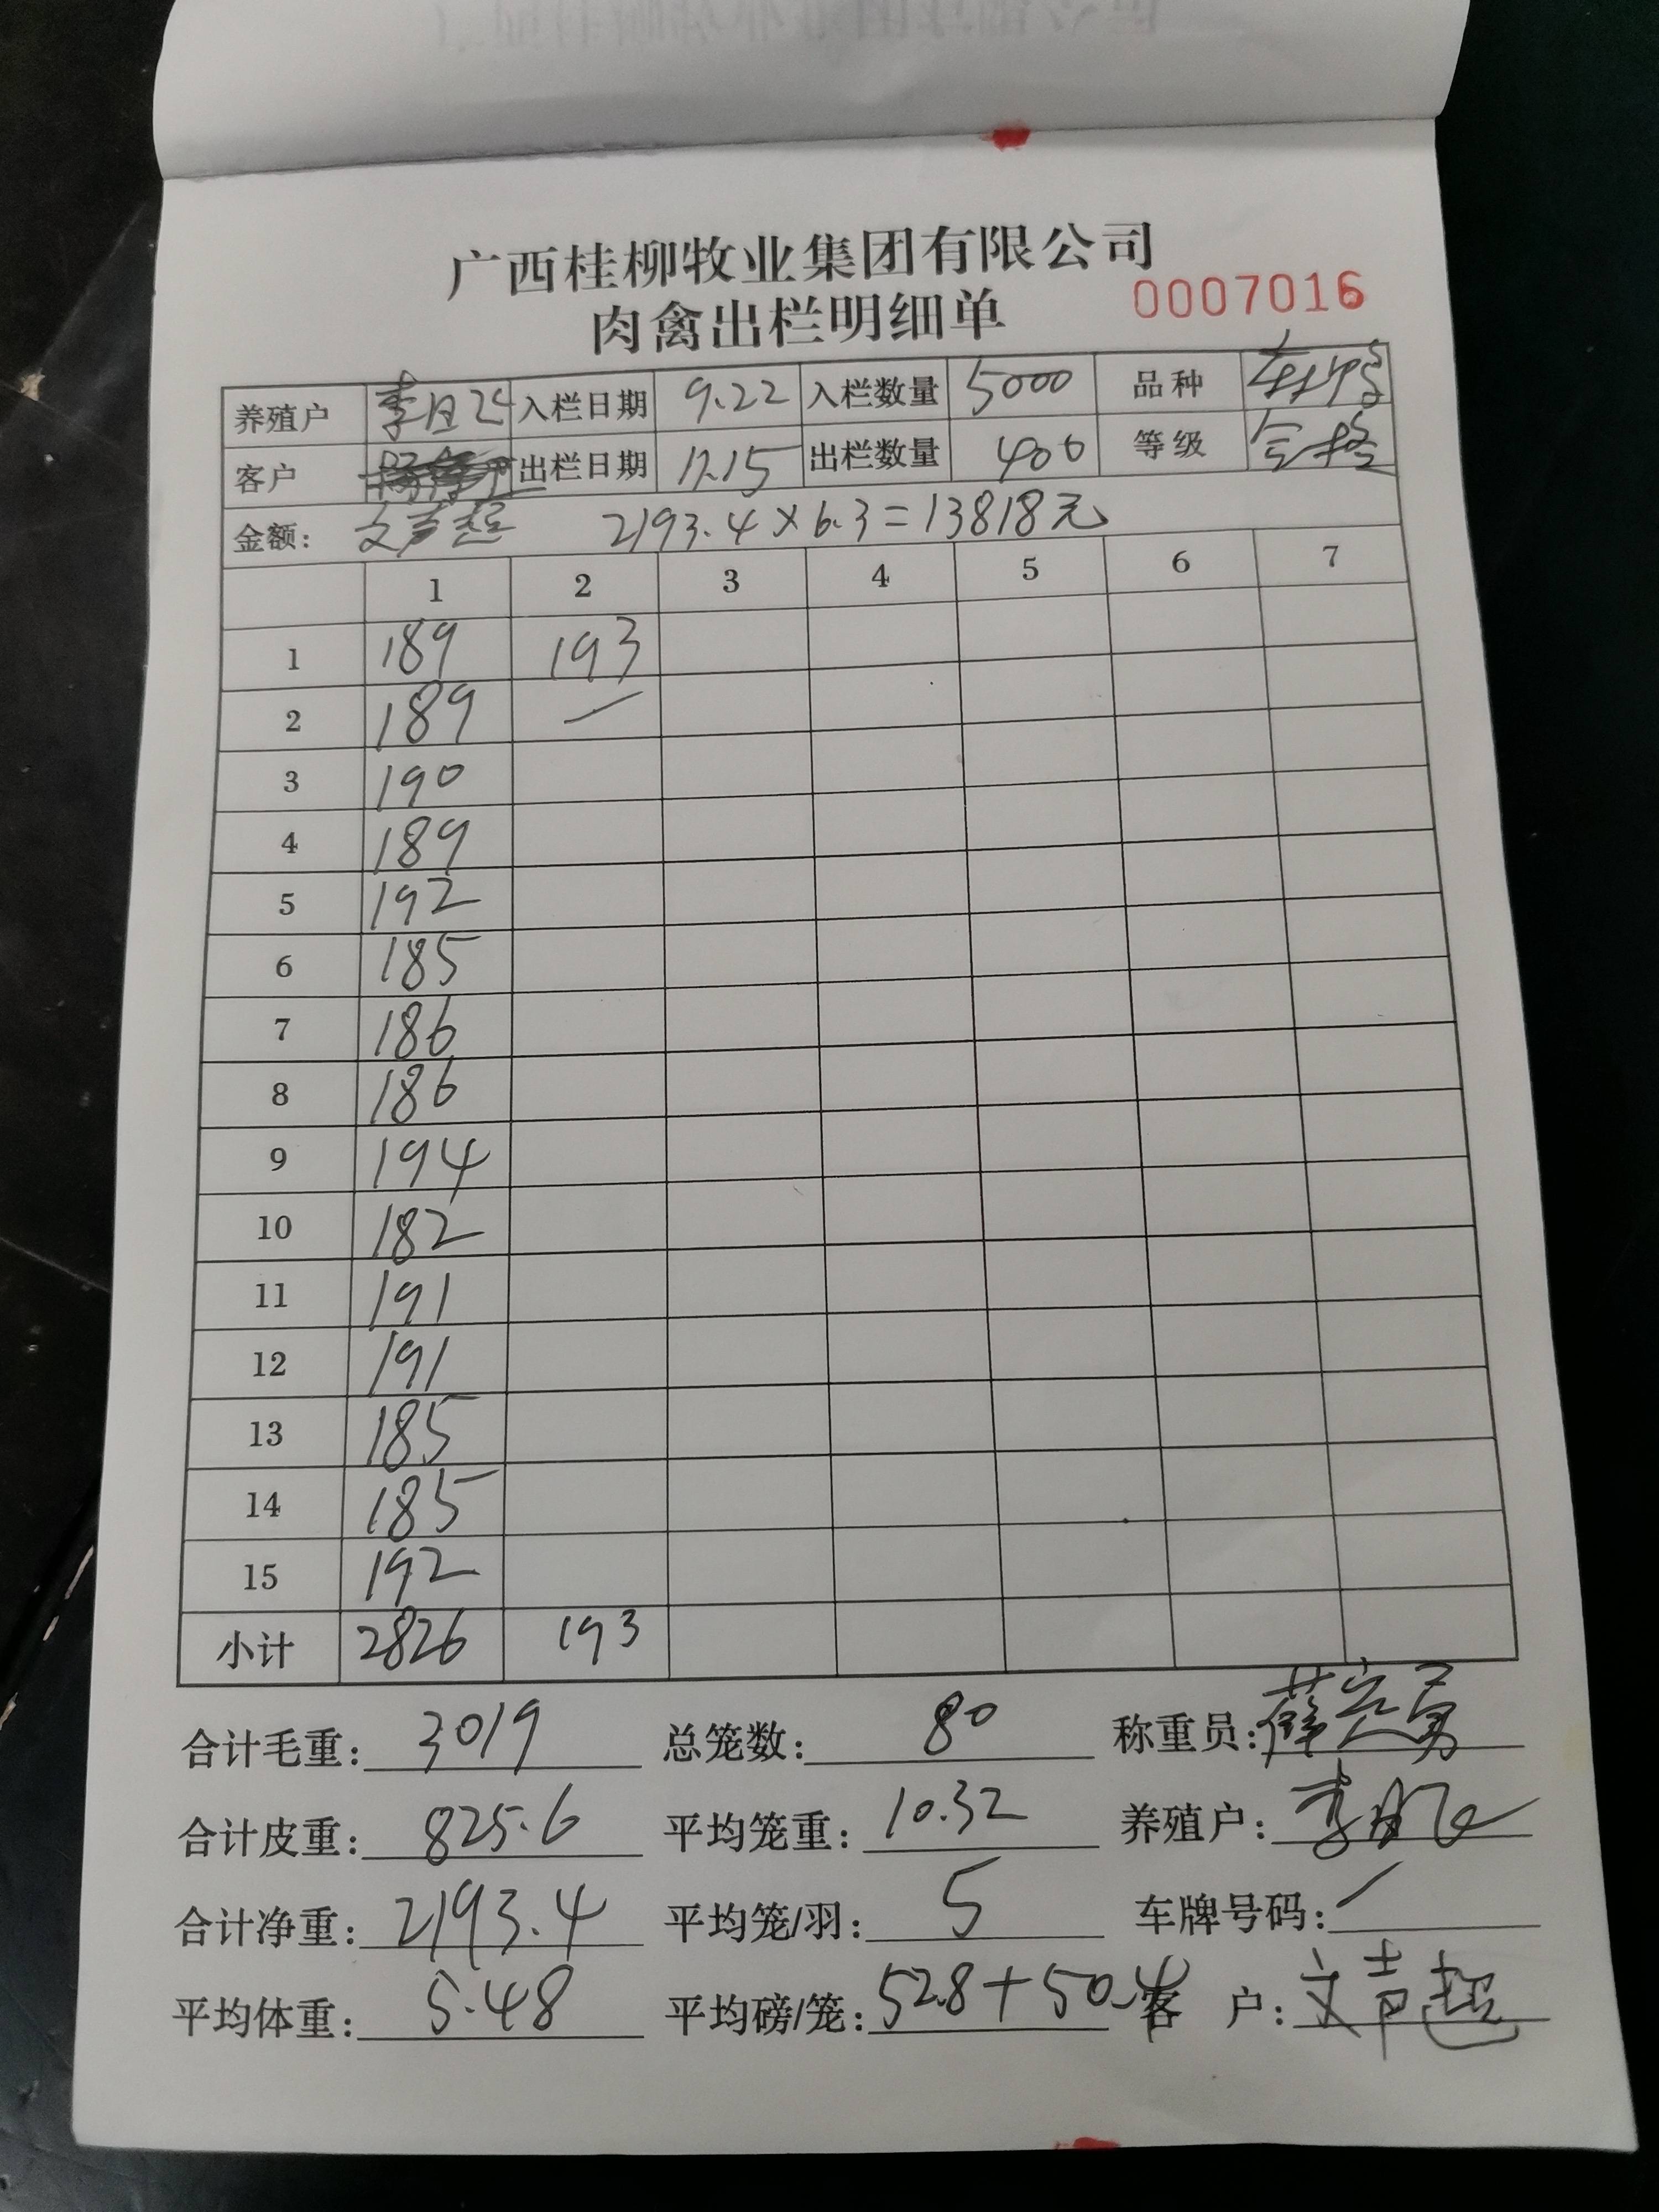 广西桂柳牧业集团有限公司
肉禽出栏明细单 0007016
养殖户 李 入栏日期 9.22 入栏数量 5000 品种
客户 出栏日期 12.15 出栏数量 400 等级
金额: 文声超 2193.4×6.3=13818元
1 2 3 4 5 6 7
1 189 193
2 189 —
3 190
4 189
5 192
6 185
7 186
8 186
9 194
10 182
11 191
12 191
13 185
14 185
15 192
小计 2826 193
合计毛重: 3019 总笼数: 80 称重员:
合计皮重: 825.6 平均笼重: 10.32 养殖户: 李
合计净重: 2193.4 平均笼/羽: 5 车牌号码: /
平均体重: 5.48 平均磅/笼: 52.8+50.4 客 户: 文声超